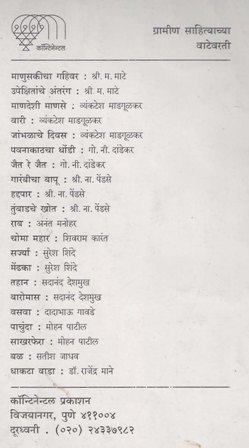 कॉन्टिनेन्टल
ग्रामीण साहित्याच्या
वाटेवरती
माणुसकीचा गहिवर : श्री. म. माटे
उपेक्षितांचे अंतरंग : श्री. म. माटे
माणदेशी माणसे : व्यंकटेश माडगूळकर
वारी : व्यंकटेश माडगूळकर
जांभळाचे दिवस : व्यंकटेश माडगूळकर
पवनाकाठचा धोंडी : गो. नी. दांडेकर
जैत रे जैत : गो. नी. दांडेकर
गारंबीचा बापू : श्री. ना. पेंडसे
हद्दपार : श्री. ना. पेंडसे
तुंबाडचे खोत : श्री. ना. पेंडसे
राब : अनंत मनोहर
चोमा महार : शिवराम कारंत
सर्ज्या : सुरेश शिंदे
मेंडका : सुरेश शिंदे
तहान : सदानंद देशमुख
बारोमास : सदानंद देशमुख
वसवा : दादाभाऊ गावडे
पाचुंदा : मोहन पाटील
साखरफेरा : मोहन पाटील
बळ : सतीश जाधव
धाकटा वाडा : डॉ. राजेंद्र माने
कॉन्टिनेन्टल प्रकाशन
विजयानगर, पुणे ४११००४
दूरध्वनी . (०२०) २४३३७९८२